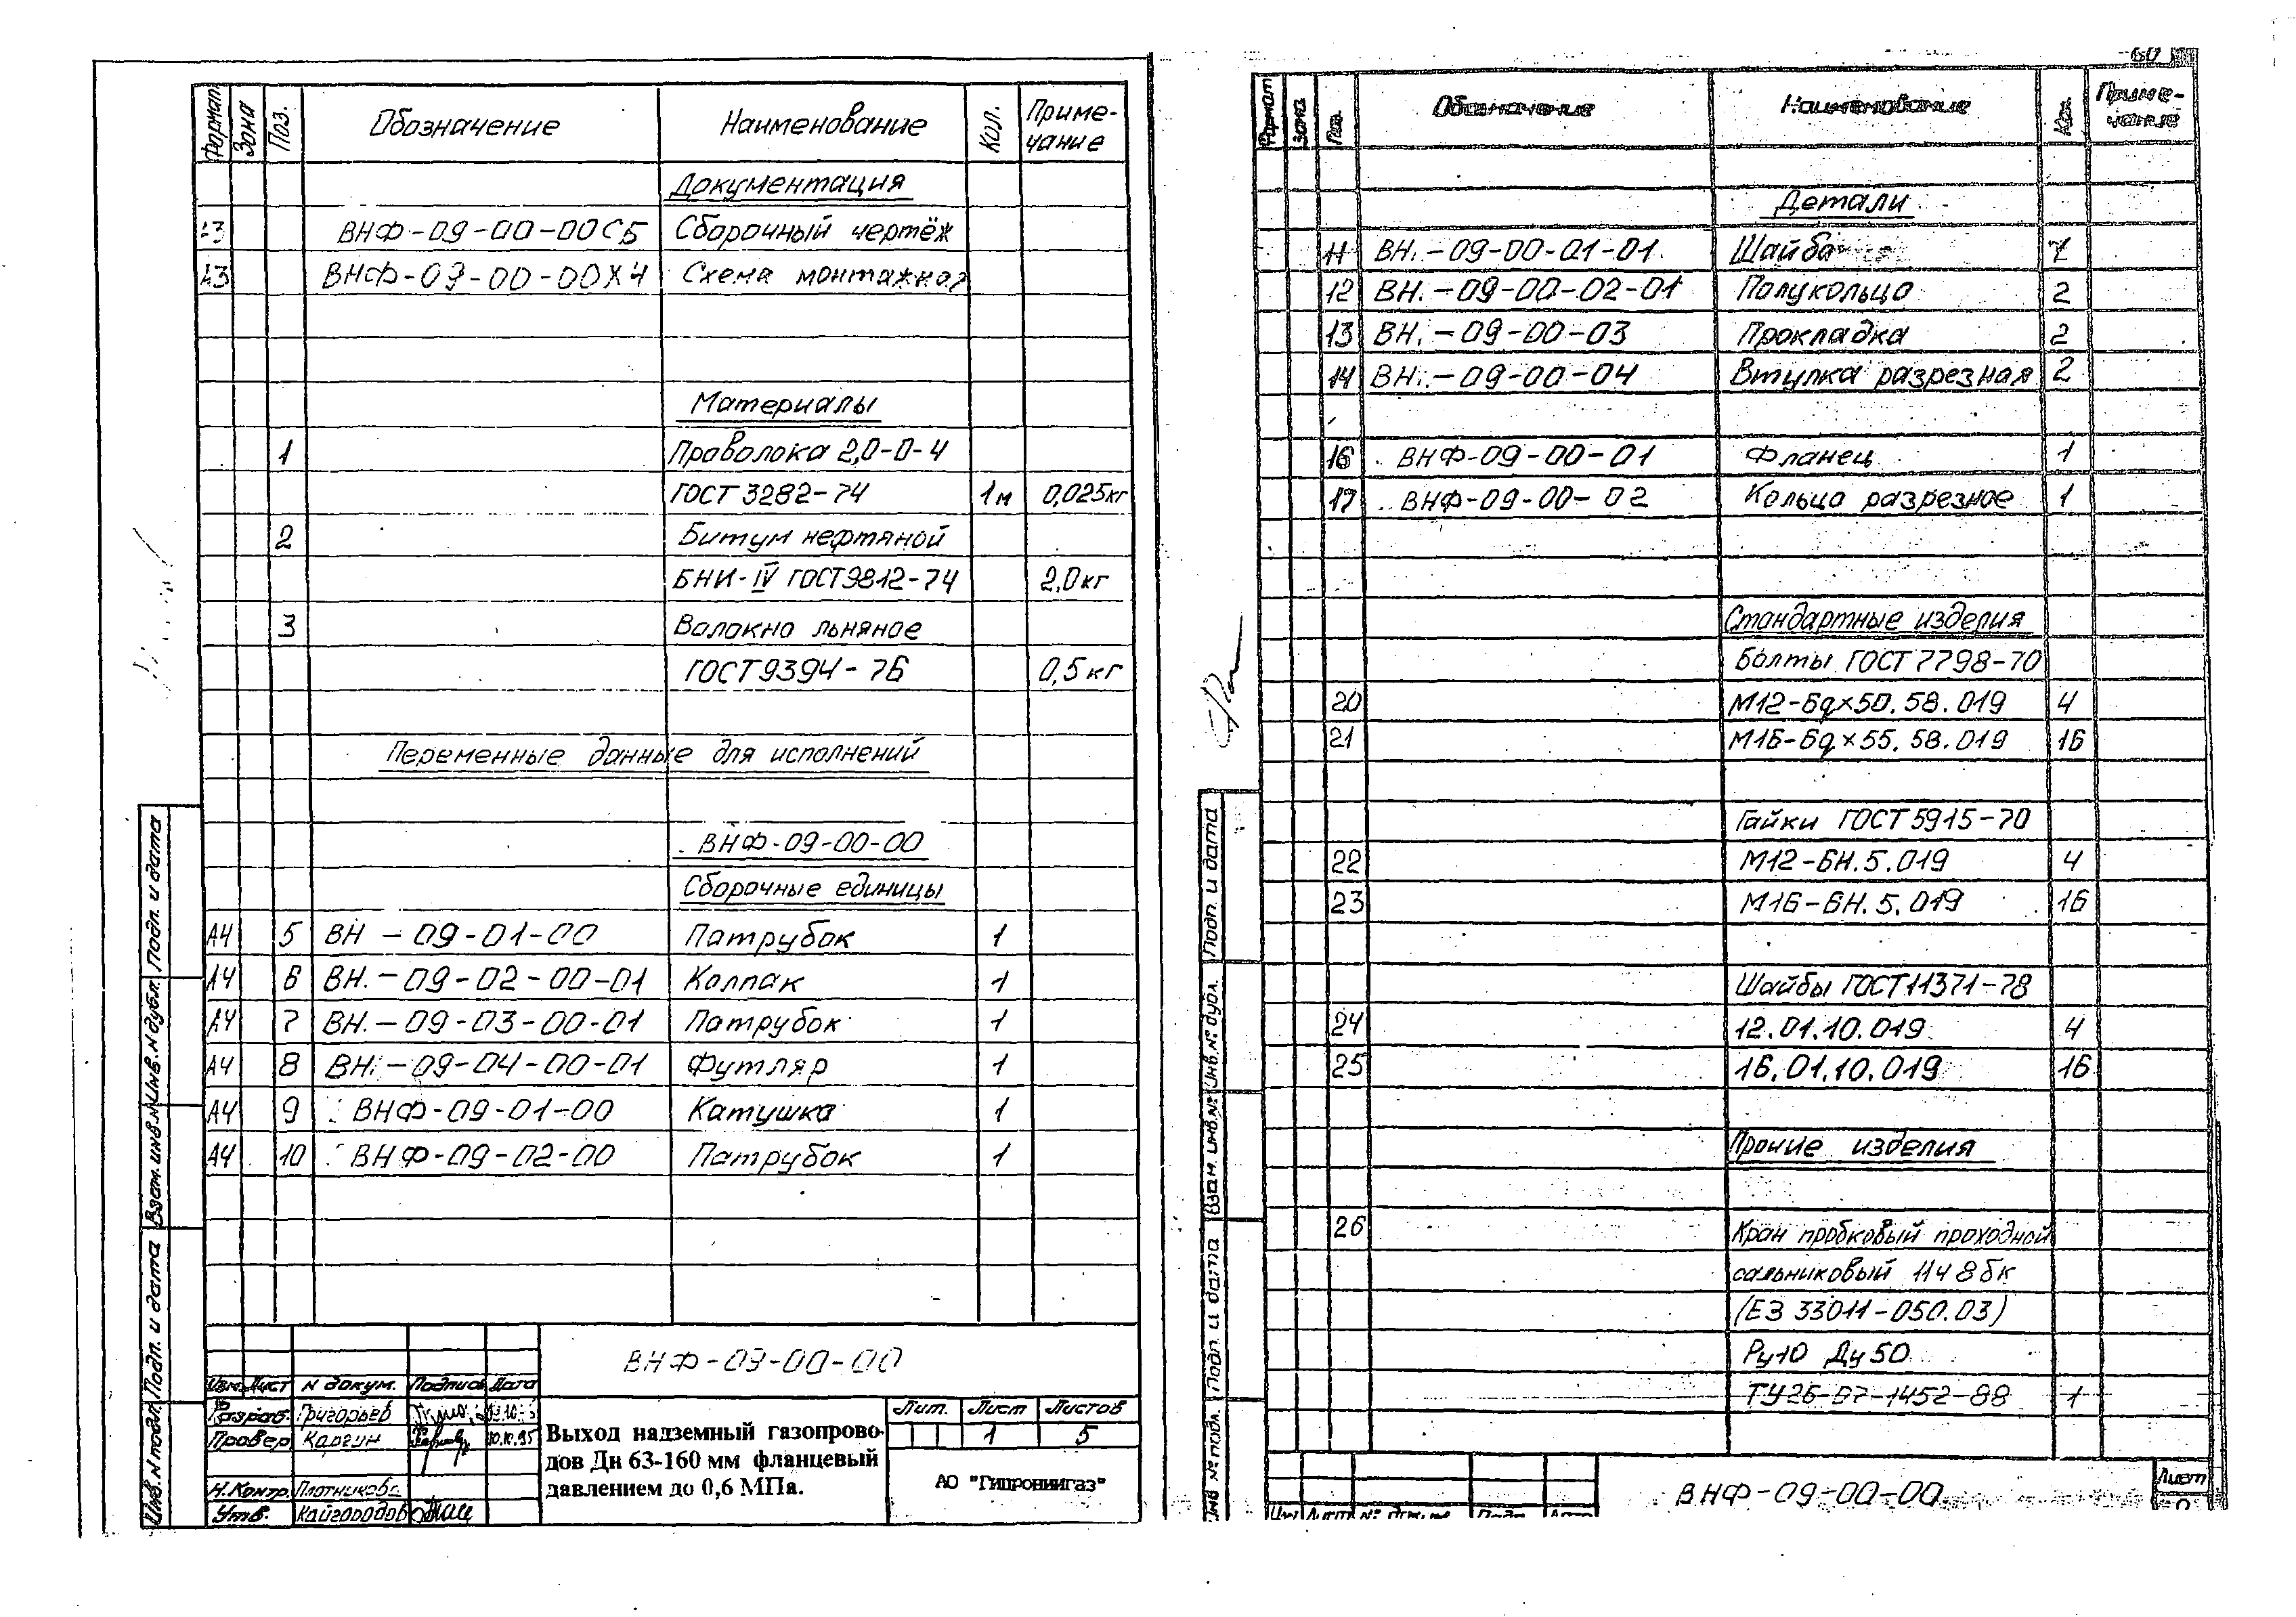 Формат Зона Поз. Обозначение Наименование Кол. Приме-
чание
Документация
ВНФ-09-00-00СБ Сборочный чертёж
А3 ВНФ-09-00-00Х4 Схема монтажная
Материалы
1 Проволока 2,0-0-4
ГОСТ 3282-74 1м 0,025кг
2 Битум нефтяной
БНИ-IV ГОСТ9812-74 2,0кг
3 Волокно льняное
ГОСТ9394-76 0,5кг
Переменные данные для исполнений
ВНФ-09-00-00
Сборочные единицы
А4 5 ВН-09-01-00 Патрубок 1
А4 6 ВН.-09-02-00-01 Колпак 1
А4 7 ВН.-09-03-00-01 Патрубок 1
А4 8 ВН.-09-04-00-01 Футляр 1
А4 9 ВНФ-09-01-00 Катушка 1
А4 10 ВНФ-09-02-00 Патрубок 1
Инв.N подл. Подп. и дата Взам.инв.N Инв.N дубл. Подп. и дата
ВНФ-09-00-00
Изм. Лист N докум. Подпись Дата
Разраб. Григорьев
Провер. Каргин 10.10.95
Н.Контр. Плотникова
Утв. Кайгородов
Выход надземный газопрово-
дов Дн 63-160 мм фланцевый
давлением до 0,6 МПа.
Лит. Лист Листов
1 5
АО "Гипрониигаз"
60
Формат Зона Поз. Обозначение Наименование Кол. Приме-
чание
Детали
11 ВН.-09-00-01-01 Шайба
12 ВН.-09-00-02-01 Полукольцо 2
13 ВН.-09-00-03 Прокладка 2
14 ВН.-09-00-04 Втулка разрезная 2
16 ВНФ-09-00-01 Фланец 1
17 ВНФ-09-00-02 Кольцо разрезное 1
Стандартные изделия
Болты ГОСТ 7798-70
20 М12-6gх50.58.019 4
21 М16-6gх55.58.019 16
Гайки ГОСТ5915-70
22 М12-6Н.5.019 4
23 М16-6Н.5.019 16
Шайбы ГОСТ11371-78
24 12.01.10.019 4
25 16.01.10.019 16
Прочие изделия
26 Кран пробковый проходной
сальниковый 11ч8бк
(ЕЗ 33011-050.03)
Ру10 Ду50
ТУ26-07-1452-88 1
Инв № подл. Подп. и дата Взам. инв.№ Инв.№ дубл. Подп. и дата
ВНФ-09-00-00
Лист